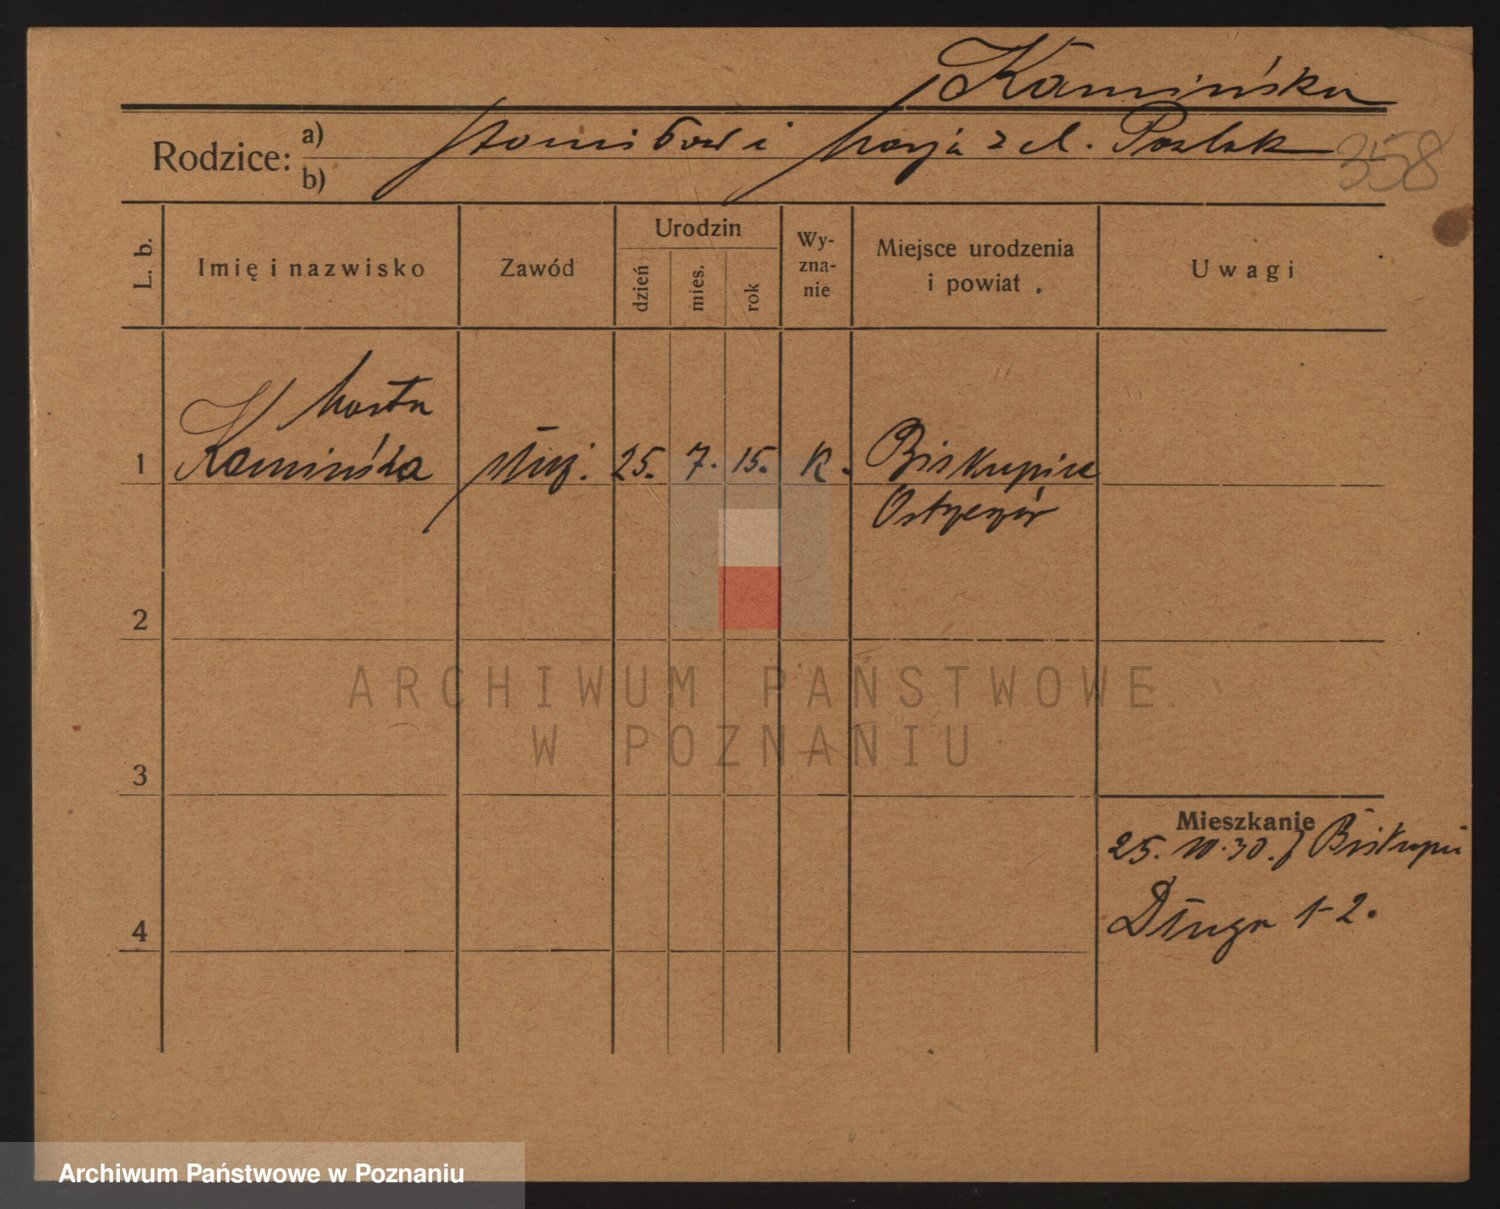 Kamińska
Rodzice: a) Stanisław i Marja z d. Polak
b)
358
L. b.
Imię i nazwisko
Zawód
Urodzin
dzień
mies.
rok
Wy-
zna-
nie
Miejsce urodzenia
i powiat
Uwagi
Marta
1 Kamińska służ. 25. 7. 15. K. Biskupice
2
3
4
Mieszkanie
25. 10. 30. z Biskupic
Długa 1-2.
ARCHIWUM PAŃSTWOWE
W POZNANIU
Archiwum Państwowe w Poznaniu